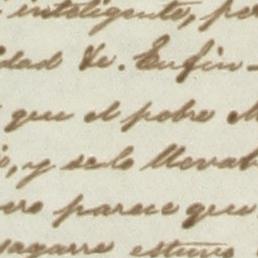 inteligente, pe
idad Ve. Enfin-
que el pobre M
o, y se lo lleva
ero parece que
estuvo